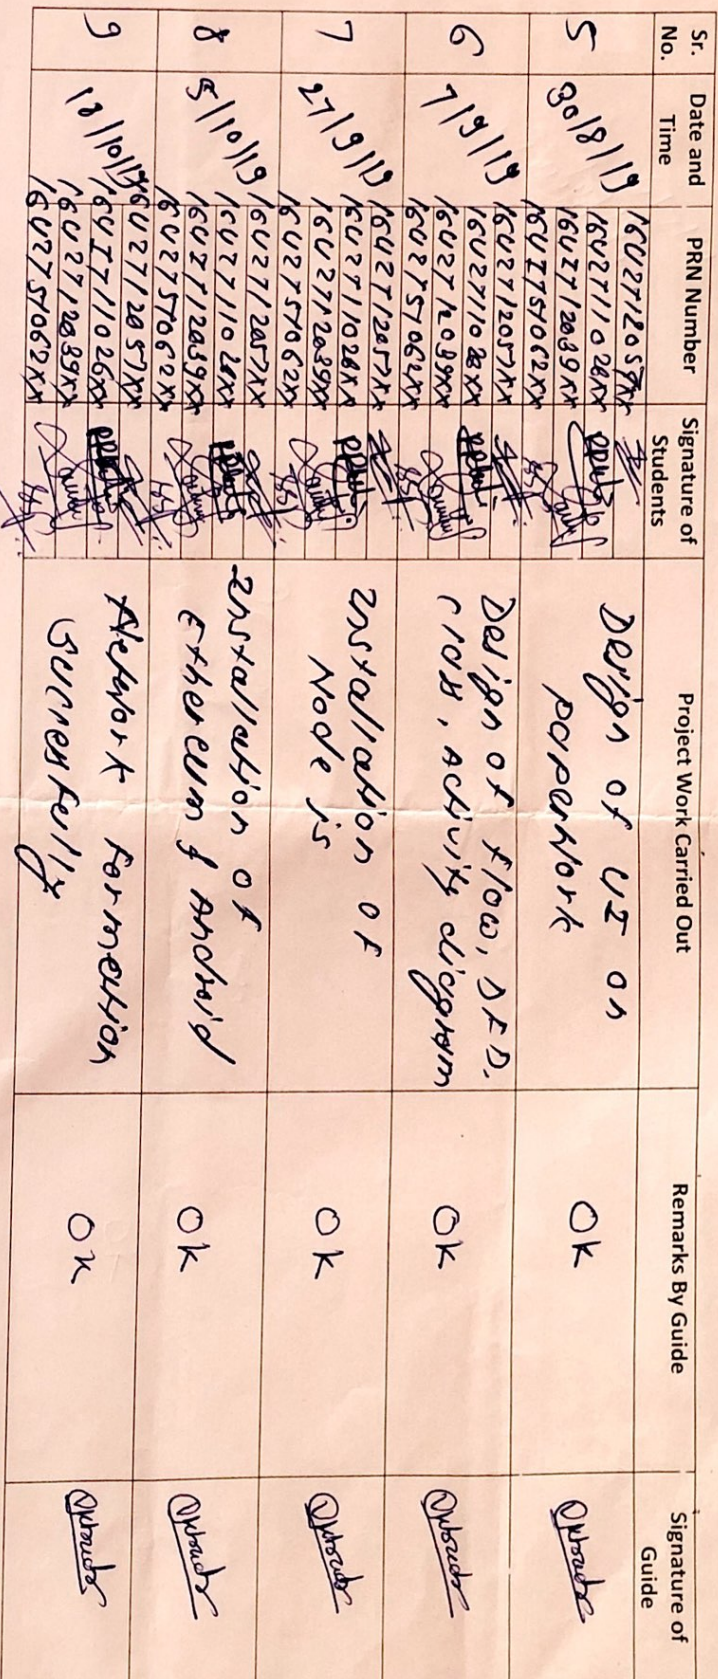 Sr. No.
Date and Time
PRN Number
Signature of Students
Project Work Carried Out
Remarks By Guide
Signature of Guide
5
30/8/19
16U2712057xx
16U2711028xx
16U2712039xx
16U2757062xx
Design of UI on
paperwork
Ok
6
7/9/19
16U2712057xx
16U2711028xx
16U2712039xx
16U2757062xx
Design of flow, DFD,
class, activity diagram
Ok
7
27/9/19
16U2712057xx
16U2711028xx
16U2712039xx
16U2757062xx
Installation of
Node js
Ok
8
5/10/19
16U2712057xx
16U2711028xx
16U2712039xx
16U2757062xx
Installation of
Ethereum & Android
Ok
9
18/10/19
16U2712057xx
16U2711028xx
16U2712039xx
16U2757062xx
Network formation
Successfully
Ok